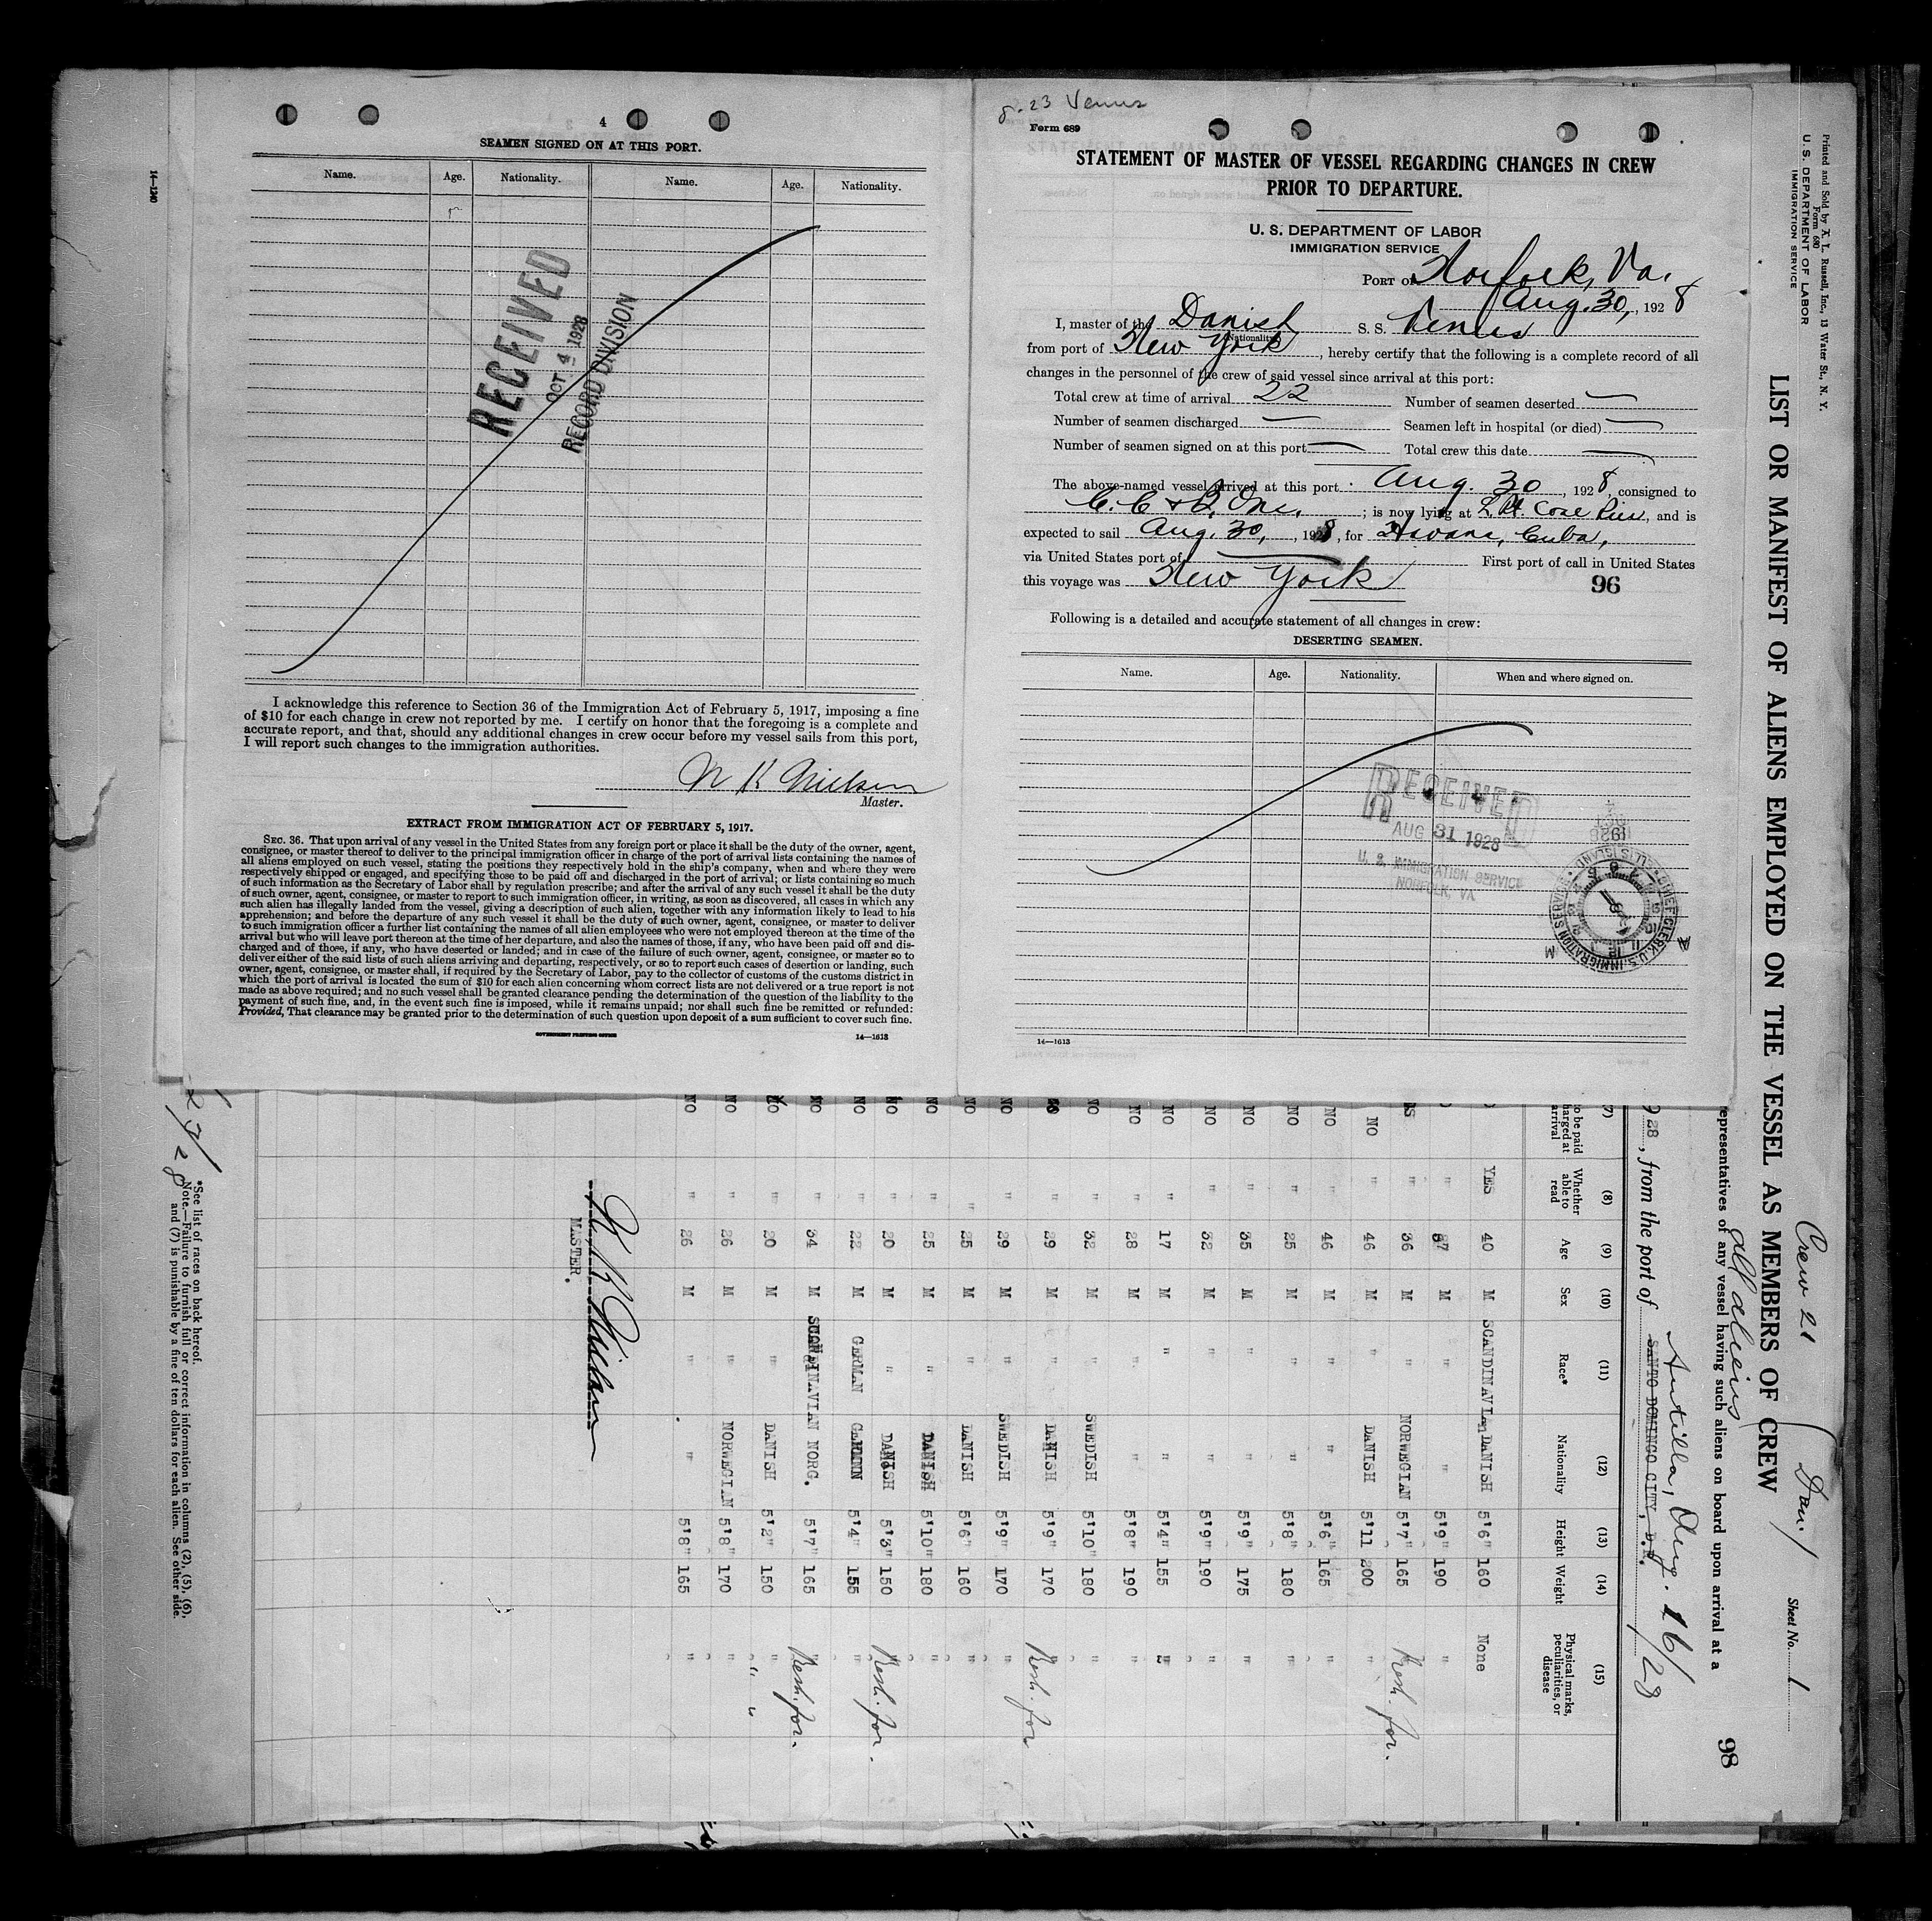 4
SEAMEN SIGNED ON AT THIS PORT.
Name. Age. Nationality. Name. Age. Nationality.
RECEIVED
OCT 4 1928
RECORD DIVISION
I acknowledge this reference to Section 36 of the Immigration Act of February 5, 1917, imposing a fine
of $10 for each change in crew not reported by me. I certify on honor that the foregoing is a complete and
accurate report, and that, should any additional changes in crew occur before my vessel sails from this port,
I will report such changes to the immigration authorities.
N K Nielsen
Master.
EXTRACT FROM IMMIGRATION ACT OF FEBRUARY 5, 1917.
SEC. 36. That upon arrival of any vessel in the United States from any foreign port or place it shall be the duty of the owner, agent,
consignee, or master thereof to deliver to the principal immigration officer in charge of the port of arrival lists containing the names of
all aliens employed on such vessel, stating the positions they respectively hold in the ship's company, when and where they were
respectively shipped or engaged, and specifying those to be paid off and discharged in the port of arrival; or lists containing so much
of such information as the Secretary of Labor shall by regulation prescribe; and after the arrival of any such vessel it shall be the duty
of such owner, agent, consignee, or master to report to such immigration officer, in writing, as soon as discovered, all cases in which any
such alien has illegally landed from the vessel, giving a description of such alien, together with any information likely to lead to his
apprehension; and before the departure of any such vessel it shall be the duty of such owner, agent, consignee, or master to deliver
to such immigration officer a further list containing the names of all alien employees who were not employed thereon at the time of the
arrival but who will leave port thereon at the time of her departure, and also the names of those, if any, who have been paid off and dis-
charged and of those, if any, who have deserted or landed; and in case of the failure of such owner, agent, consignee, or master so to
deliver either of the said lists of such aliens arriving and departing, respectively, or so to report such cases of desertion or landing, such
owner, agent, consignee, or master shall, if required by the Secretary of Labor, pay to the collector of customs of the customs district in
which the port of arrival is located the sum of $10 for each alien concerning whom correct lists are not delivered or a true report is not
made as above required; and no such vessel shall be granted clearance pending the determination of the question of the liability to the
payment of such fine, and, in the event such fine is imposed, while it remains unpaid; nor shall such fine be remitted or refunded:
Provided, That clearance may be granted prior to the determination of such question upon deposit of a sum sufficient to cover such fine.
GOVERNMENT PRINTING OFFICE 14—1613
14—1240
23 Venus
Form 689
STATEMENT OF MASTER OF VESSEL REGARDING CHANGES IN CREW
PRIOR TO DEPARTURE.
U. S. DEPARTMENT OF LABOR
IMMIGRATION SERVICE
PORT OF Norfolk, Va.
Aug. 30, 1928
I, master of the Danish S. S. Venus
(Nationality)
from port of New York, hereby certify that the following is a complete record of all
changes in the personnel of the crew of said vessel since arrival at this port:
Total crew at time of arrival 22 Number of seamen deserted —
Number of seamen discharged — Seamen left in hospital (or died) —
Number of seamen signed on at this port — Total crew this date —
The above-named vessel arrived at this port Aug. 30, 1928, consigned to
; is now lying at Coal Pier, and is
expected to sail Aug. 30, 1928, for Havana, Cuba,
via United States port of — First port of call in United States
this voyage was New York
96
Following is a detailed and accurate statement of all changes in crew:
DESERTING SEAMEN.
Name. Age. Nationality. When and where signed on.
RECEIVED
AUG 31 1928
U. S. IMMIGRATION SERVICE
NORFOLK, VA
CHIEF CLERK U.S. IMMIGRATION SERVICE
14—1613
Printed and Sold by A. L. Russell, Inc., 13 Water St., N. Y.
Form 680
U. S. DEPARTMENT OF LABOR
IMMIGRATION SERVICE
Crew 21
all aliens
Sheet No. 1
LIST OR MANIFEST OF ALIENS EMPLOYED ON THE VESSEL AS MEMBERS OF CREW
98
epresentatives of any vessel having such aliens on board upon arrival at a
Antilla, Aug. 16/28
928, from the port of SANTO DOMINGO CITY, D.R.
(7) (8) (9) (10) (11) (12) (13) (14) (15)
to be paid harged at arrival Whether able to read Age Sex Race* Nationality Height Weight Physical marks, peculiarities, or disease
YES 40 M SCANDINAVIAN DANISH 5'6" 160 None
" 37 M " " 5'9" 190 "
" 36 M " NORWEGIAN 5'7" 165 " Resh. for.
NO " 46 M " DANISH 5'11 200 "
NO " 46 M " " 5'6" 165 "
NO " 25 M " " 5'8" 180 "
NO " 35 M " " 5'9" 175 "
NO " 32 M " " 5'9" 190 "
NO " 17 M " " 5'4" 155 "
NO " 28 M " " 5'8" 190 "
NO " 32 M " SWEDISH 5'10" 180 "
NO " 29 M " DANISH 5'9" 170 " Resh. for
NO " 29 M " SWEDISH 5'9" 170 "
NO " 25 M " DANISH 5'6" 160 "
NO " 25 M " DANISH 5'10" 180 "
NO " 20 M " DANISH 5'3" 150 " Resh. for.
NO " 22 M GERMAN GERMAN 5'4" 155 "
NO " 34 M SCANDINAVIAN NORG. 5'7" 165 " Resh. for.
NO " 20 M " DANISH 5'2" 150 " " "
NO " 26 M " NORWEGIAN 5'8" 170 "
NO " 26 M " " 5'8" 165 "
N K Nielsen
MASTER.
*See list of races on back hereof.
Note.—Failure to furnish full or correct information in columns (2), (5), (6),
and (7) is punishable by a fine of ten dollars for each alien. See other side.